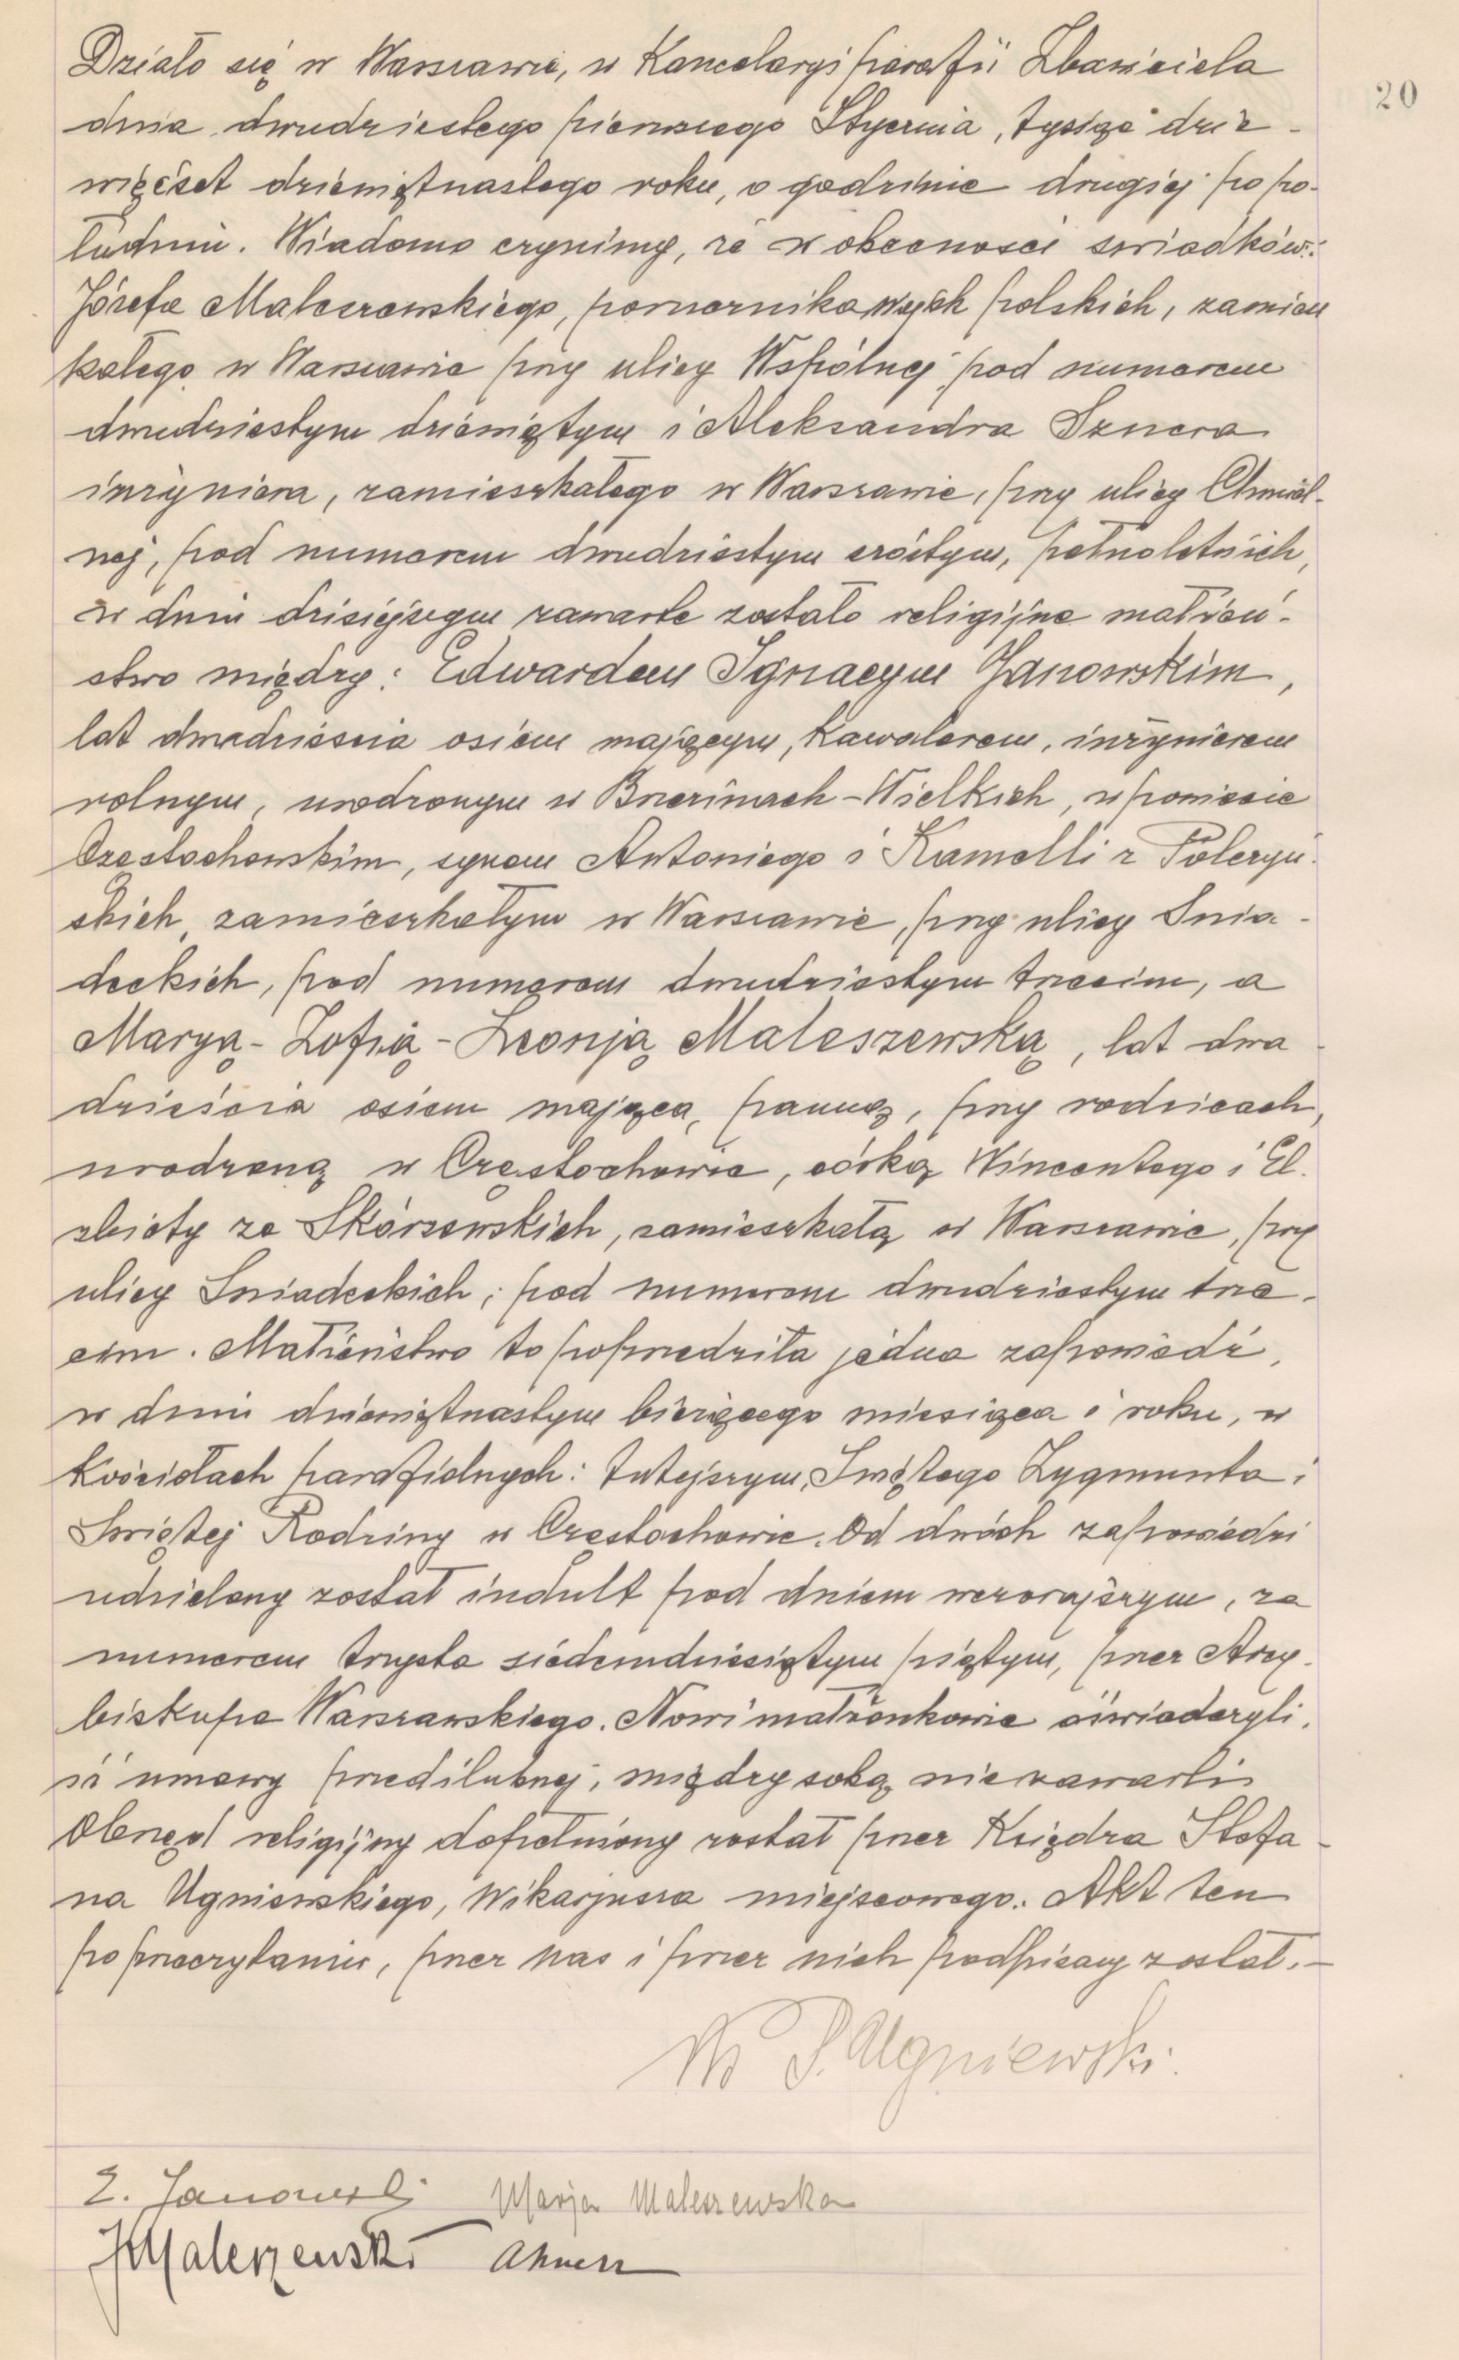 20
Działo się w Warszawie, w Kancelaryi parafii Zbawiciela
dnia dwudziestego pierwszego Stycznia, tysiąc dzie-
więćset dziewiętnastego roku, o godzinie drugiej po po-
łudniu. Wiadomo czynimy, że w obecności świadków:
Józefa Maleszewskiego, porucznika wojsk polskich, zamiesz
kałego w Warszawie przy ulicy Wspólnej pod numerem
dwudziestym dziewiętym i Aleksandra Sznera
inżyniera, zamieszkałego w Warszawie, przy ulicy Chmiel-
nej, pod numerem dwudziestym szóstym, pełnoletnich,
w dniu dzisiejszym zawarte zostało religijne małżeń-
stwo między: Edwardem Ignacym Janowskim,
lat dwadzieścia osiem mającym, kawalerem, inżynierem
rolnym, urodzonym w Brzezinach-Wielkich, w powiecie
Częstochowskim, synem Antoniego i Kamelli z Poleryń-
skich, zamieszkałym w Warszawie, przy ulicy Śnia-
deckich, pod numerem dwudziestym trzecim, a
Maryą-Zofią-Leonją Maleszewską, lat dwa
dzieścia osiem mającą, panną, przy rodzicach,
urodzoną w Częstochowie, córką Wincentego i El-
zbiety ze Skórzewskich, zamieszkałą w Warszawie, przy
ulicy Śniadeckich, pod numerem dwudziestym trze-
cim. Małżeństwo to poprzedziła jedna zapowiedź,
w dniu dziewiętnastym bieżącego miesiąca i roku, w
Kościołach parafialnych: tutejszym, Świętego Zygmunta i
Świętej Rodziny w Częstochowie. Od dwóch zapowiedzi
udzielony został indult pod dniem wczorajszym, za
numerem trzysta siedemdziesiątym piątym, przez Arcy-
biskupa Warszawskiego. Nowi małżonkowie oświadczyli,
iż umowy przedślubnej, między sobą nie zawarli.
Obrzęd religijny dopełniony został przez Księdza Stefa-
na Ugniewskiego, Wikarjusza miejscowego. Akt ten
po przeczytaniu, przez nas i przez nich podpisany został.—
S. Ugniewski.
E. Janowski Marja Maleszewska
J Maleszewski